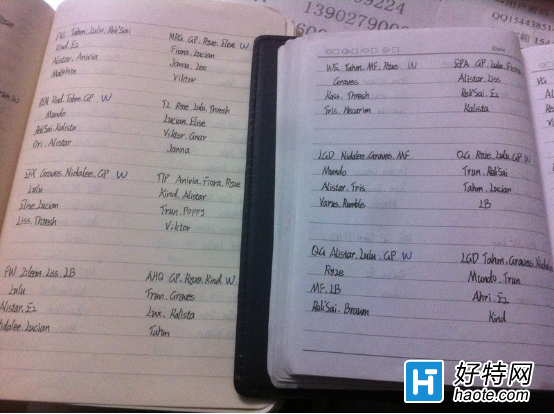 13902790000
QQ1544385
IG Tahm. Lulu. Rek'Sai
Kind. Ez
Nistar. Anivia
Malphite
MRG GP. Ryze. Elise W
Fiora. Lucian
Janna. Lee
Viktor
Kind. Tahm. GP W
Mundo
Rek'Sai. Kalista
Ori. Alistar
TL Ryze. Lulu. Thresh
Lucian. Elise
Viktor. Gnar
Janna
Graves. Nidalee. GP W
Lulu
Elise. Lucian
Liss. Thresh
TIP Anivia. Fiora. Ryze
Kind. Alistar
Trun. Poppy
Viktor
FW Zilean. Liss. LB
Lulu
Alistar. Ez
Nidalee. Lucian
AHQ GP. Ryze. Kind W
Trun. Graves
Lux. Kalista
Tahm
Date
WE Tahm. MF. Ryze W
Graves
Kass. Thresh
Tris. Hecarim
EPA GP. Lulu. Fiora
Alistar. Liss
Rek'Sai. Ez
Kalista
LGD Nidalee. Graves. MF
Mundo
Alistar. Tris
Varus. Rumble
QG Ryze. Lulu. GP W
Trun. Rek'Sai
Tahm. Lucian
LB
QG Alistar. Lulu. GP W
Ryze
MF. LB
Rek'Sai. Braum
LGD Tahm. Graves. Nidalee
Mundo. Trun
Ahri. Ez
Kind
好特网
haote.com